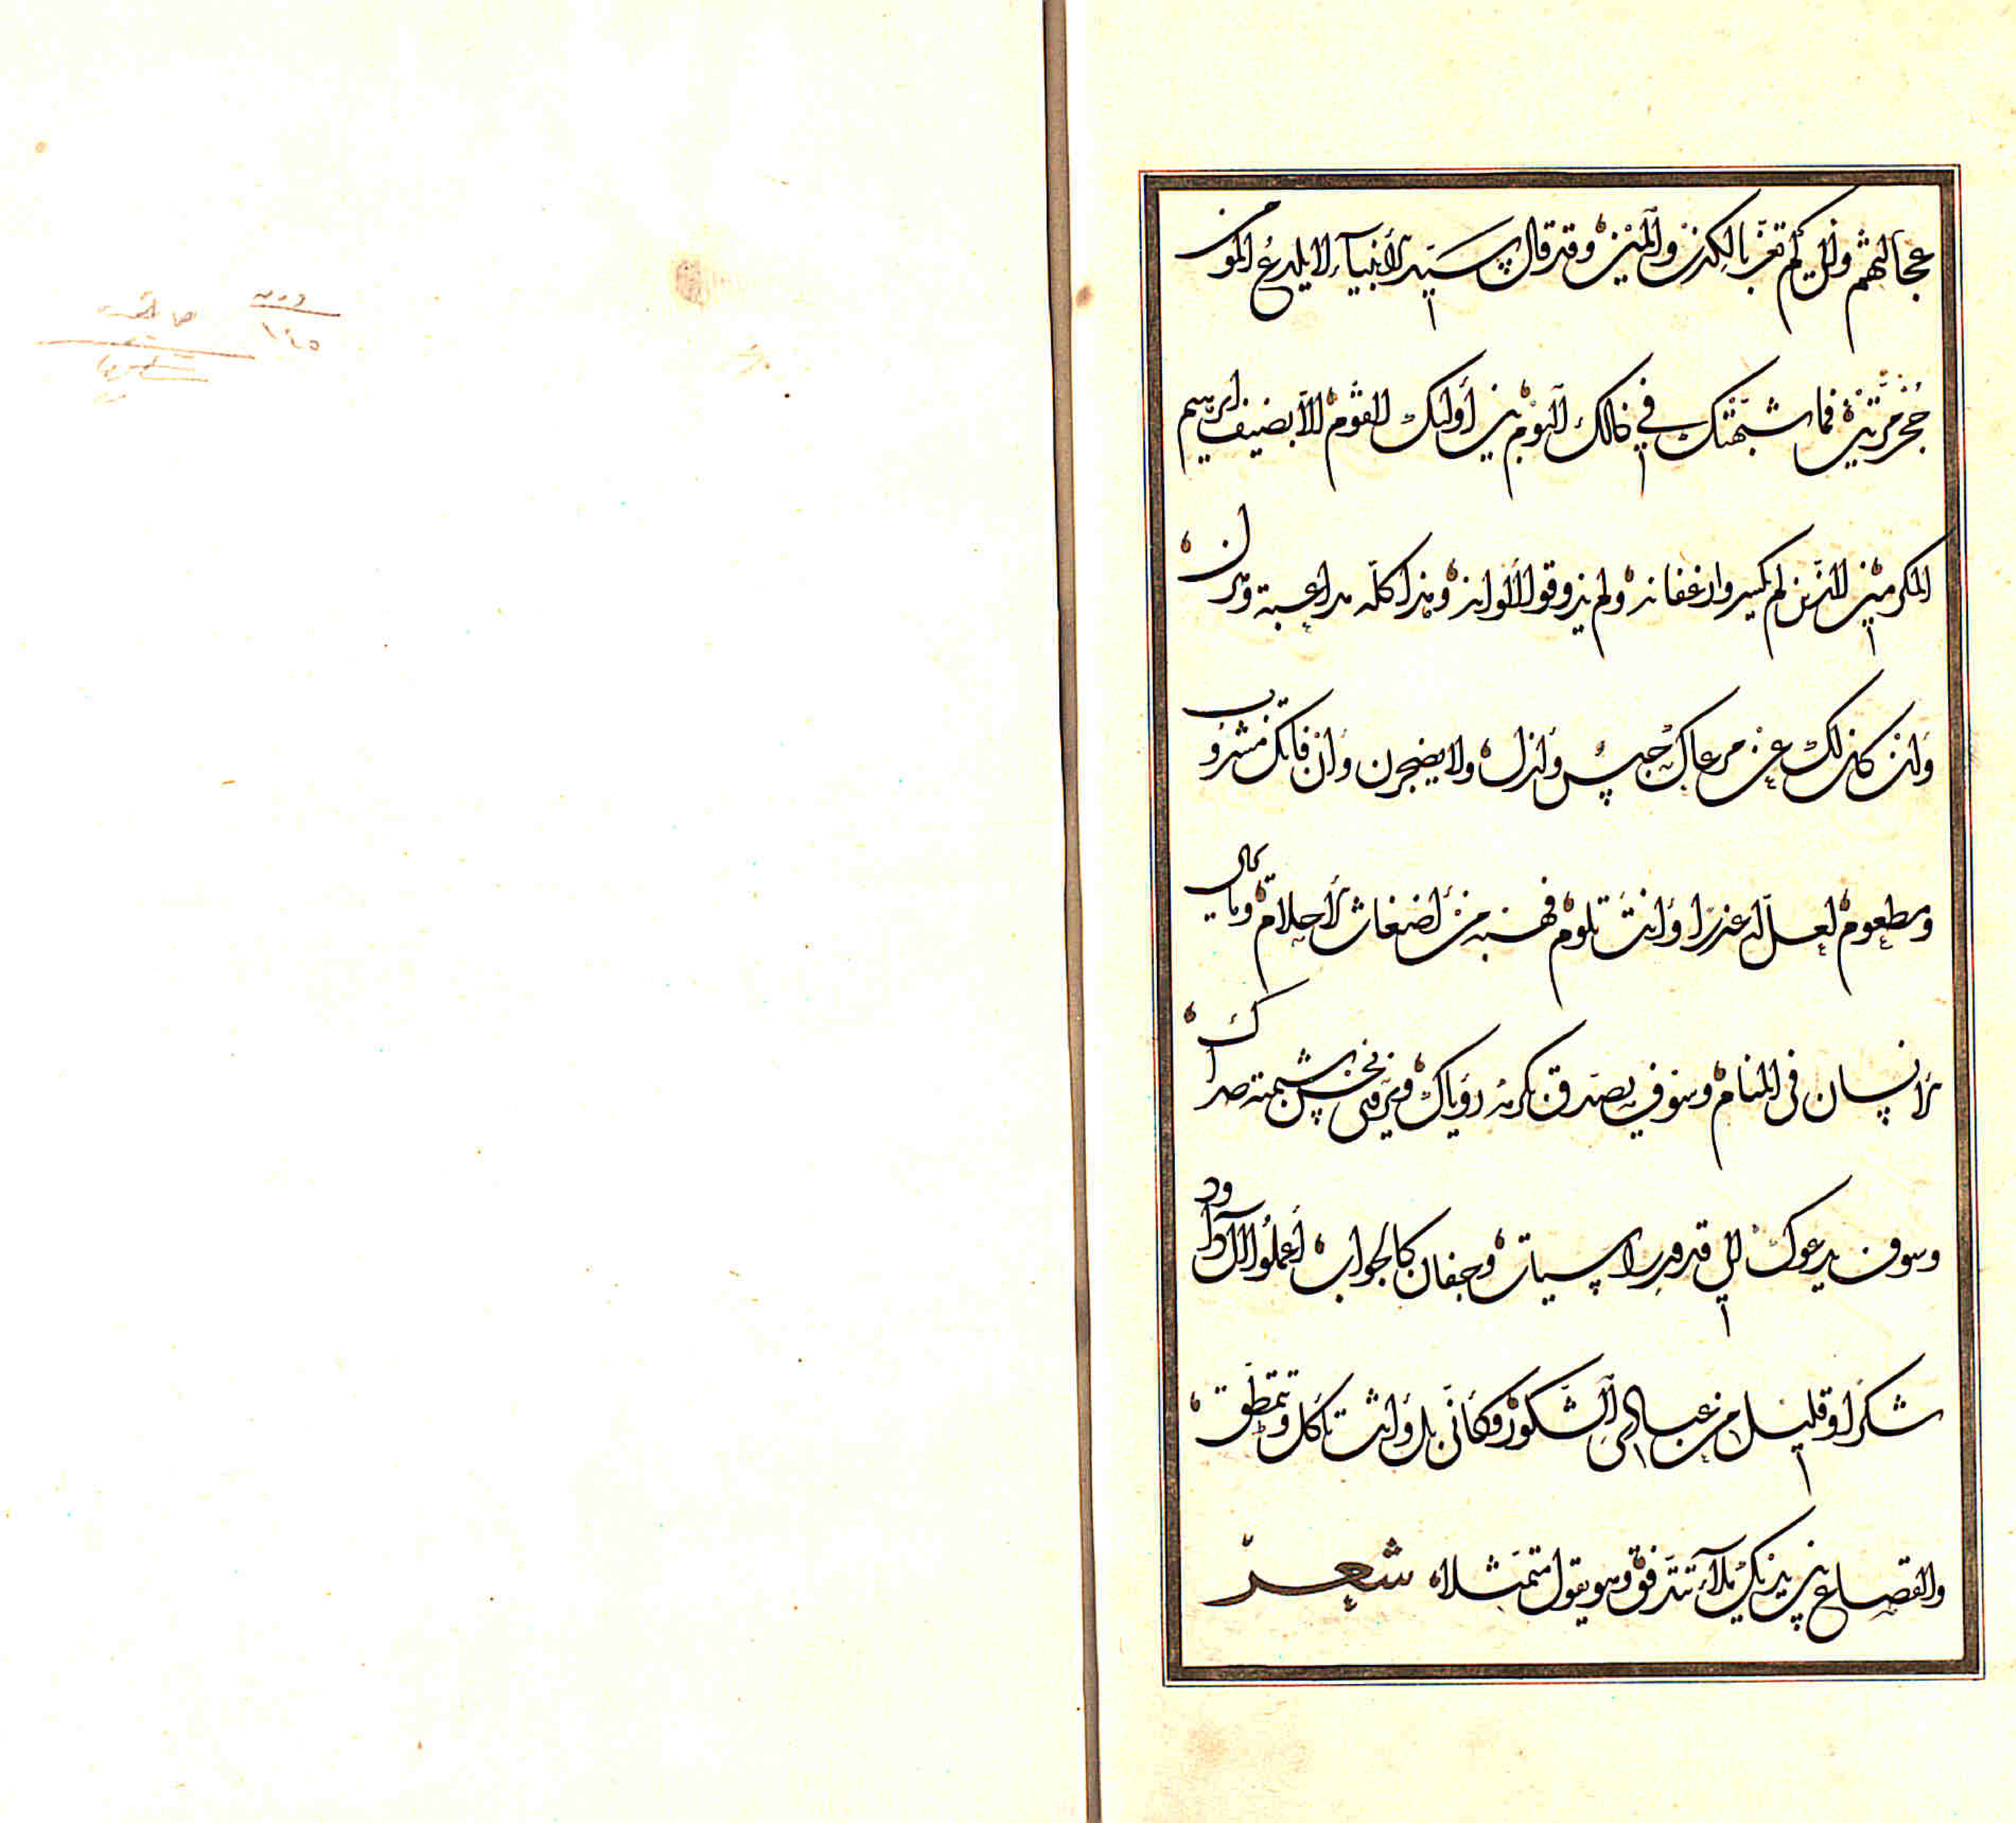 عجالتهم وان لم تغر بالكذب والمين وقد قال سيد الأنبياء لا يلدغ المؤمن
جحر مرتين فما شبهتك في ذلك اليوم بين أولئك القوم الا بضيف ابرهيم
المكرمين الذين لم يكسروا رغفان ولم يذوقوا الألوان وهذا كله مداعبة وهزل
ولئن كان لك عن مرعاك حبس وازل ولا يضجرن وان فاتك مشروب
ومطعوم لعل له عذرا وأنت تلوم فهذه من أضغاث الأحلام وما كل
الانسان في المنام وسوف يصدق كرمه رؤياك
وسوف يدعوك الى قدور راسيات وجفان كالجواب اعملوا ال داود
شكرا وقليل من عبادي الشكور وكأني بك وأنت تأكل وتتمطق
والقصاع بين يديك ملآء تتدفق وهو يقول متمثلا شعر